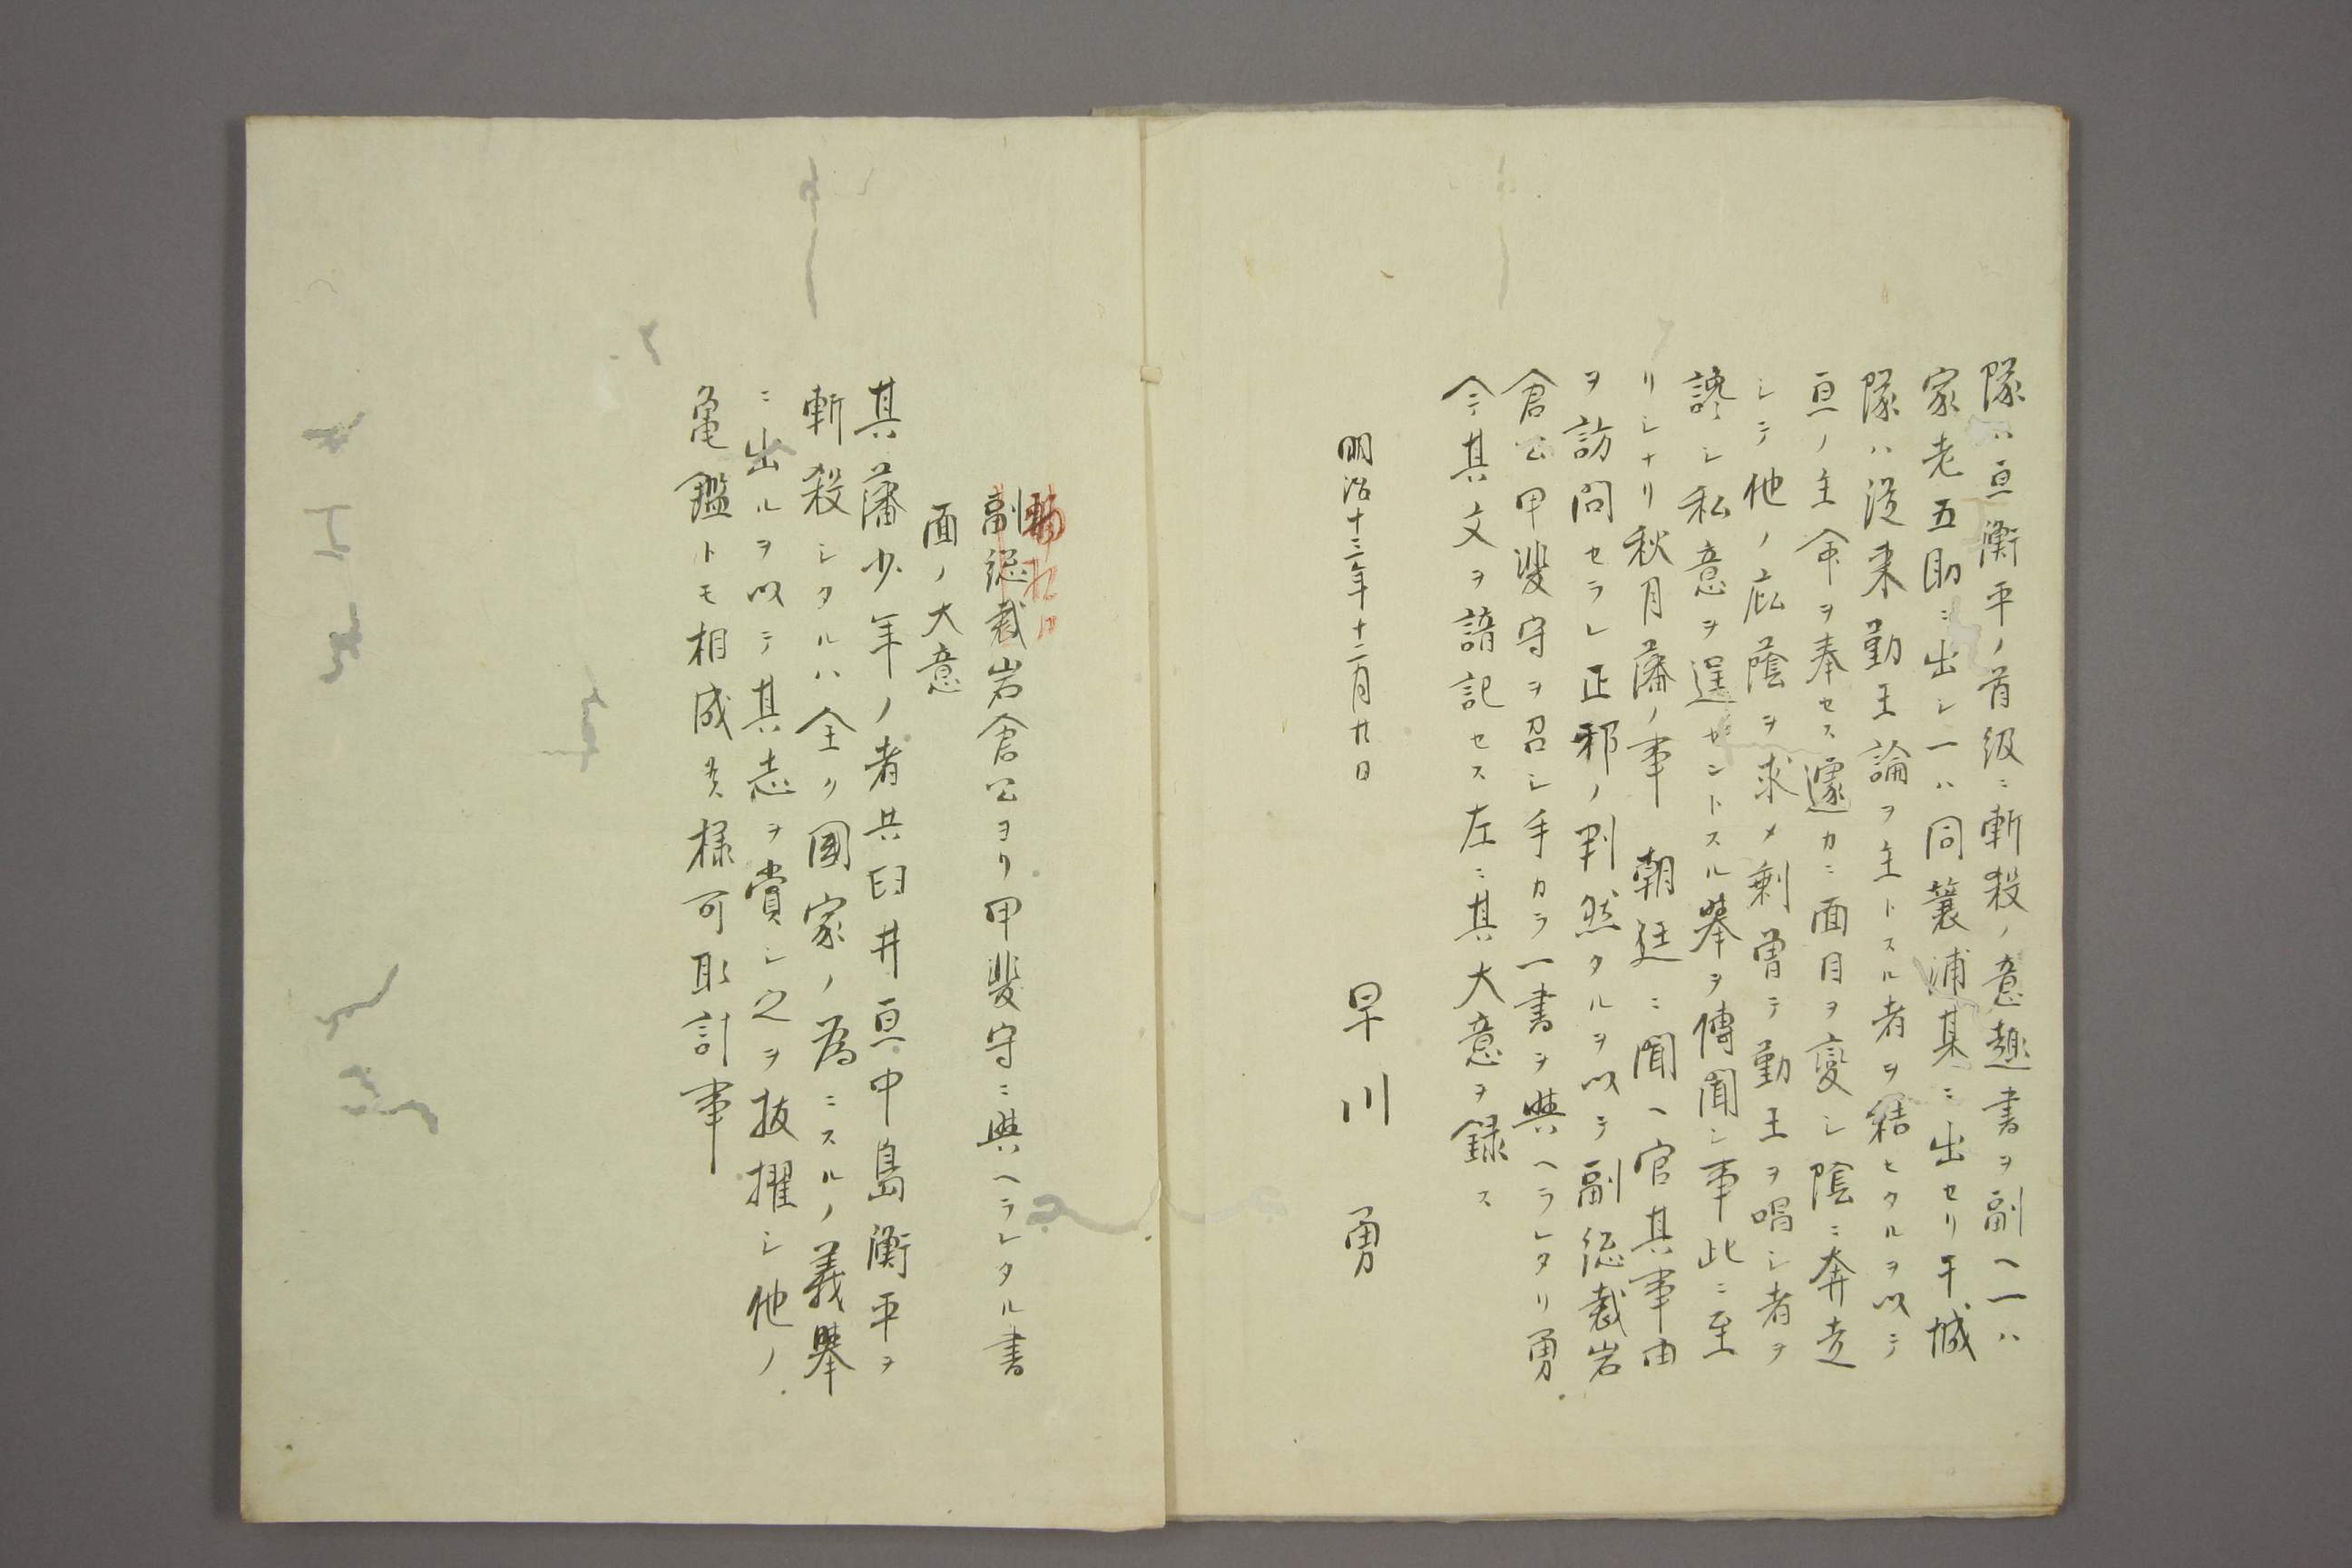 隊ハ亘衡平ノ首級ニ斬殺ノ意趣書ヲ副ヘ一ハ
家老五助ニ出シ一ハ同簑浦某ニ出セリ干城
隊ハ従来勤王論ヲ主トスル者ヲ結ヒタルヲ以テ
亘ノ主命ヲ奉セス遽カニ面目ヲ變シ陰ニ奔走
シテ他ノ庇蔭ヲ求メ剰曽テ勤王ヲ唱シ者ヲ
讒シ私意ヲ逞セントスル擧ヲ傳聞シ事此ニ至
リシナリ秋月藩ノ事 朝廷ニ聞ヘ官其事由
ヲ訪問セラレ正邪ノ判然タルヲ以テ副総裁岩
倉公甲斐守ヲ召シ手カラ一書ヲ與ヘラレタリ勇
今其文ヲ諳記セス左ニ其大意ヲ録ス
明治十三年十二月廿日
早川勇
輔相
副総裁岩倉公ヨリ甲斐守ニ與ヘラレタル書
面ノ大意
其藩少年ノ者共臼井亘中島衡平ヲ
斬殺シタルハ全ク國家ノ為ニスルノ義擧
ニ出ルヲ以テ其志ヲ賞シ之ヲ抜擢シ他ノ
亀鑑トモ相成候様可取計事